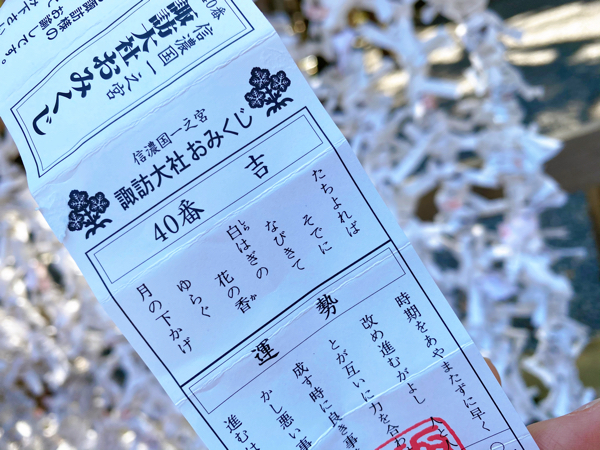 諏訪様の
お諭しです。
信濃国一之宮
諏訪大社おみくじ
信濃国一之宮
諏訪大社 おみくじ
40番 吉
たちよれば
そでに
なびきて
白はぎの
花の香
ゆらぐ
月の下かげ
運勢
時期をあやまたずに早く
改め進むがよし 人と人
とが互いに力を合わ
成す時に良き事
かし悪い事
進むは